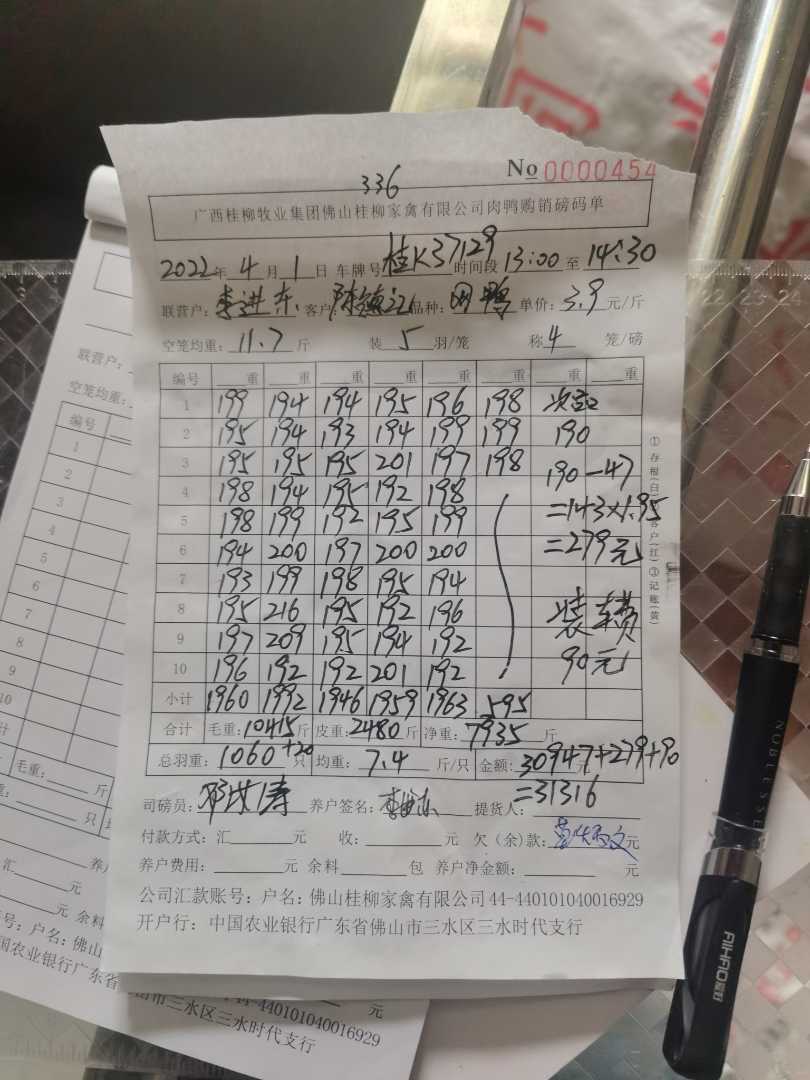 336
No 0000454
广西桂柳牧业集团佛山桂柳家禽有限公司肉鸭购销磅码单
2022年 4 月 1 日 车牌号 桂K37129 时间段 13:00 至 14:30
联营户: 李进东 客户: 陈镇江 品种: 肉鸭 单价: 3.9 元/斤
空笼均重: 11.7 斤 装 5 羽/笼 称 4 笼/磅
编号 重 重 重 重 重 重 重 重
1 199 194 194 195 196 198
2 195 194 193 194 199 199 190
3 195 195 195 201 197 198 190-47
4 198 194 195 192 198
=143×1.95
5 198 199 192 195 199
6 194 200 197 200 200 =279元
7 193 199 198 195 194
8 195 216 195 192 196 装车费
9 197 209 195 194 192
10 196 192 192 201 192 90元
小计 1960 1992 1946 1959 1963 595
合计 毛重: 10415 斤 皮重: 2480 斤 净重: 7935 斤
总羽重: 1060+20 只 均重: 7.4 斤/只 金额: 30947元+279+90
=31316
司磅员: 养户签名: 李进东 提货人:
付款方式: 汇 元 收: 元 欠(余)款: 元
养户费用: 元 余料 包 养户净金额: 元
公司汇款账号: 户名: 佛山桂柳家禽有限公司44-440101040016929
开户行: 中国农业银行广东省佛山市三水区三水时代支行
①存根(白)②客户(红)③记账(黄)
联营户:
空笼均重:
编号
1
2
3
4
5
6
7
8
9
10
计
毛重: 斤
只
养户
汇 元
元 余料
号: 户名: 佛山
44-440101040016929
国农业银行广东省佛山市三水区三水时代支行
元
22 23 24
NOBLESSE
AIHAO